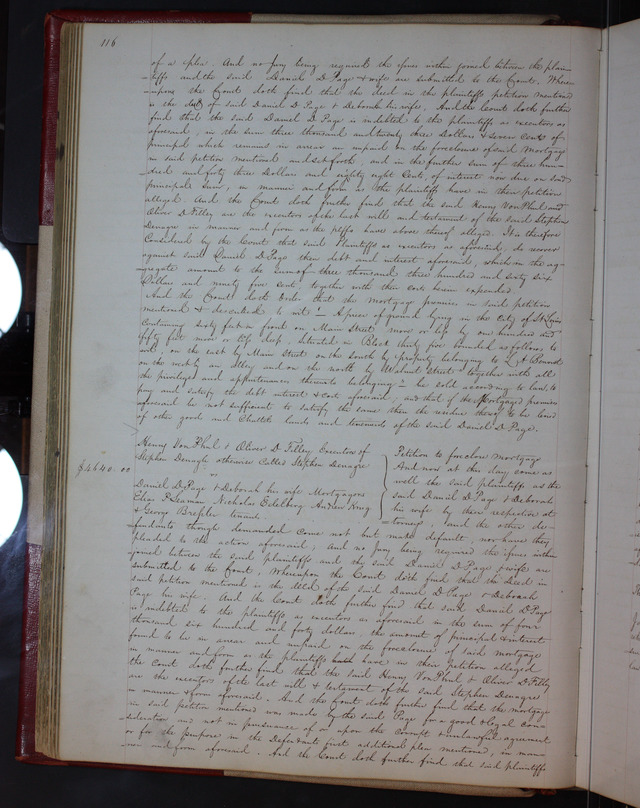 116
of a plea. And no Jury being required the issues within joined between the plain-
tiffs and the said Daniel D Page & wife are submitted to the Court. Where
upon the Court doth find that the deed in the plaintiffs petition mentioned
is the deed of said Daniel D Page & Deborah his wife. And the Court doth further
find that the said Daniel D Page is indebted to the plaintiffs as executors as
aforesaid, in the sum three thousand and twenty three Dollars & seven Cents of
principal which remains in arrear an unpaid on the foreclosure of said Mortgage
in said petition mentioned and set forth, and in the further sum of three hun-
dred and forty three Dollars and eighty eight Cents, of interest now due on said
principal sum, in manner and form as the plaintiffs have in their petition
alleged. And the Court doth further find that the said Henry Von Phul and
Oliver D Filley are the executors of the last will and testament of the said Stephen
Denagre in manner and form as the pltffs have above thereof alleged. It is therefore
Considered by the Court that said Plaintiffs as executors as aforesaid, do recover
against said Daniel D Page their debt and interest aforesaid, which in the ag-
gregate amount to the sum of three thousand three hundred and sixty six
Dollars and ninety five cents, together with their costs herein expended.
And the Court doth Order that the mortgage premises in said petition
mentioned & described, to wit: A piece of ground lying in the City of St Louis
Containing sixty feet in front on Main Street more or less by one hundred and
fifty feet more or less deep, situated in Block thirty five bounded as follows to
wit, on the east by Main Street on the south by property belonging to L A
on the west by an Alley and on the north by Walnut Street together with all
the privileges and appurtenances thereunto belonging be sold according to law, to
pay and satisfy the debt interest & cost aforesaid, and that if the Mortgaged premises
aforesaid be not sufficient to satisfy the same then the residue thereof to be levied
of other good and Chattels lands and tenements of the said Daniel D Page.
Henry Von Phul & Oliver D Filley Executors of
Stephen Denagre otherwise Called Stephen Denagre
$4640.00
vs
Daniel D Page & Deborah his wife Mortgagors
Elias Seaman Nicholas Edelberg Andrew Krug
& George Bressler tenants
Petition to foreclose mortgage
And now at this day come as
well the said plaintiffs as the
said Daniel D Page & Deborah
his wife by their respective at
torneys, and the other de-
fendants though demanded come not but make default, nor have they
pleaded to the action aforesaid; And no Jury being required the issues within
joined between the said plaintiffs and the said Daniel D Page & wife are
submitted to the Court, Whereupon the Court doth find that the Deed in
said petition mentioned is the deed of the said Daniel D Page & Deborah
Page his wife. And the Court doth further find that said Daniel D Page
is indebted to the plaintiffs as executors as aforesaid in the sum of four
thousand six hundred and forty dollars, the amount of principal & interest
found to be in arrear and unpaid on the foreclosure of said mortgage
in manner and form as the plaintiffs have in their petition alleged
the Court doth further find that the said Henry Von Phul & Oliver D Filley
are the executors of the last will & testament of the said Stephen Denagre
in manner & form aforesaid. And the Court doth further find that the mortgage
in said petition mentioned was made by the said Page for a good & legal cons-
ideration and not in pursuance of or upon the corrupt & unlawful agreement
or for the purpose in the Defendants first additional plea mentioned, in man-
ner and form aforesaid. And the Court doth further find that said plaintiffs